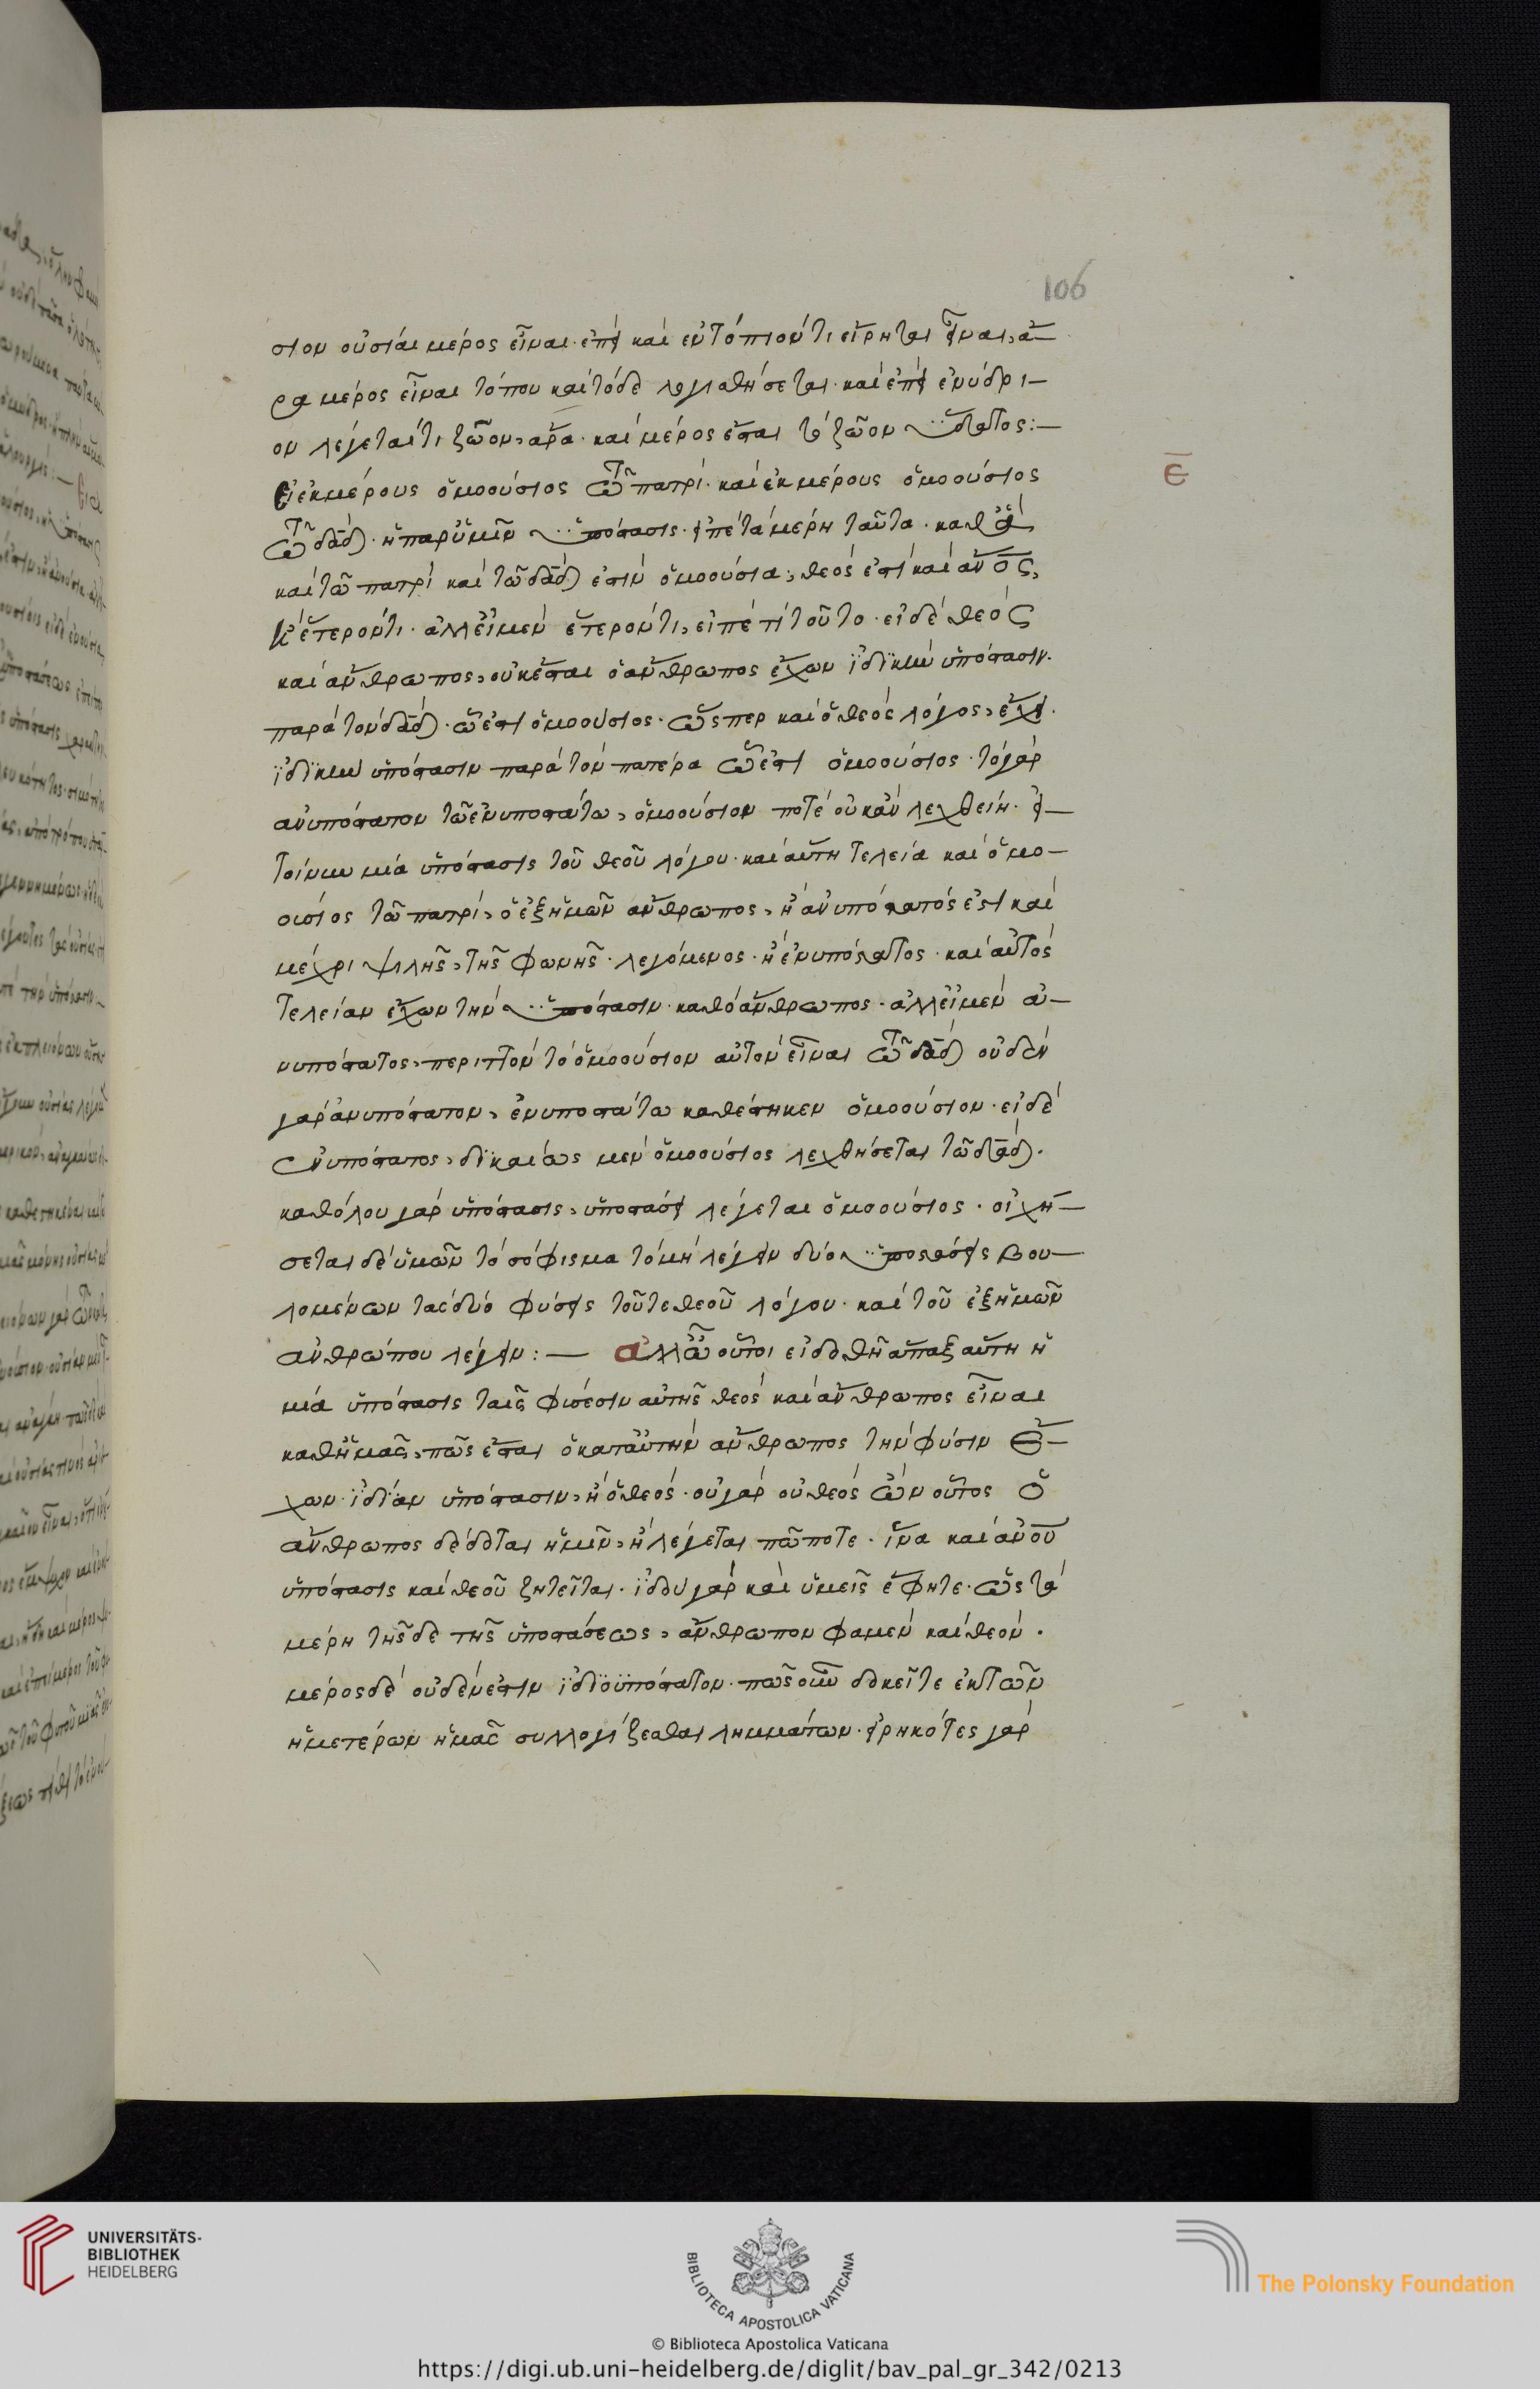 106
στον οὐσίαι μέρος εἶναι. ἐπεὶ καὶ ἐν τόπω ὄν τι εἴρηται εἶναι, ἄ-
ρα μέρος εἶναι τόπου καὶ τόδε λογισθήσεται. καὶ ἐπεὶ ἐνύδρι-
ον λέγεταί τι ζῶον, ἄρα. καὶ μέρος ἔσται τὸ ζῶον ὕδατος:-
Εἰ ἐκ μέρους ὁμοούσιος τῶ πατρί. καὶ ἐκ μέρους ὁμοούσιος
ε
τῶ δαδ. ἡ παρ ὑμῖν ὑπόστασις. εἰπὲ τὰ μέρη ταῦτα. καθ ἃ
καὶ τῶ πατρὶ καὶ τῶ δαδ ἐστὶν ὁμοούσια, θεός ἐστι καὶ ανος,
ἢ ἕτερόν τι. ἀλλ εἰ μὲν ἕτερόν τι, εἰπὲ τί τοῦτο. εἰ δὲ θεὸς
καὶ ἄνθρωπος, οὐκ ἔσται ὁ ἄνθρωπος ἔχων ἰδικὴν ὑπόστασιν.
παρὰ τὸν δαδ. ὧ ἐστι ὁμοούσιος. ὥσπερ καὶ ὁ θεὸς λόγος, ἔχει.
ἰδικὴν ὑπόστασιν παρὰ τὸν πατέρα ὧ ἐστι ὁμοούσιος. τὸ γὰρ
ἀνυπόστατον τῶ ἐνυποστάτω, ὁμοούσιον ποτὲ οὐκ ἂν λεχθείη. εἰ-
τοίνυν μία ὑπόστασις τοῦ θεοῦ λόγου. καὶ αὕτη τελεία καὶ ὁμο-
ούσιος τῶ πατρί, ὁ ἐξ ἡμῶν ἄνθρωπος, ἢ ἀνυπόστατός ἐστι καὶ
μέχρι ψιλῆς, τῆς φωνῆς. λεγόμενος. ἢ ἐνυπόστατος. καὶ αὐτὸς
τελείαν ἔχων τὴν ὑπόστασιν. καθὸ ἄνθρωπος. ἀλλ εἰ μὲν ἀ-
νυπόστατος, περιττὸν τὸ ὁμοούσιον αὐτὸν εἶναι τῶ δαδ οὐδὲν
γὰρ ἀνυπόστατον, ἐνυποστάτω καθέστηκεν ὁμοούσιον. εἰ δὲ
ἐνυπόστατος, δικαίως μὲν ὁμοούσιος λεχθήσεται τῶ δαδ.
καθόλου γὰρ ὑπόστασις, ὑποστάσει λέγεται ὁμοούσιος. οἰχή-
σεται δὲ ὑμῶν τὸ σόφισμα τὸ μὴ λέγειν δύο ὑποστάσεις βου-
λομένων τὰς δύο φύσεις τοῦ τε θεοῦ λόγου. καὶ τοῦ ἐξ ἡμῶν
ἀνθρώπου λέγειν:- ἀλλ ὦ οὗτοι εἰ δοθῆ ἅπαξ αὕτη ἡ
μία ὑπόστασις ταῖς φύσεσιν αὐτῆς θεὸς καὶ ἄνθρωπος εἶναι
καθ ἡμᾶς, πῶς ἔσται ὁ κατ αὐτὴν ἄνθρωπος τὴν φύσιν ἔ-
χων. ἰδίαν ὑπόστασιν, ἢ ὁ θεός. οὐ γὰρ οὐ θεὸς ὢν οὗτος ὁ
ἄνθρωπος δέδοται ἡμῖν, ἢ λέγεται πώποτε. ἵνα καὶ ανου
ὑπόστασις καὶ θεοῦ ζητεῖται. ἰδοὺ γὰρ καὶ ὑμεῖς ἔφητε. ὡς τὰ
μέρη τῆσδε τῆς ὑποστάσεως, ἄνθρωπον φαμὲν καὶ θεόν.
μέρος δὲ οὐδέν ἐστιν ἰδιοϋπόστατον. πῶς οὖν δοκεῖτε ἐκ τῶν
ἡμετέρων ἡμᾶς συλλογίζεσθαι λημμάτων. εἰρηκότες γὰρ
UNIVERSITÄTS-
BIBLIOTHEK
HEIDELBERG
BIBLIOTECA APOSTOLICA VATICANA
The Polonsky Foundation
© Biblioteca Apostolica Vaticana
https://digi.ub.uni-heidelberg.de/diglit/bav_pal_gr_342/0213